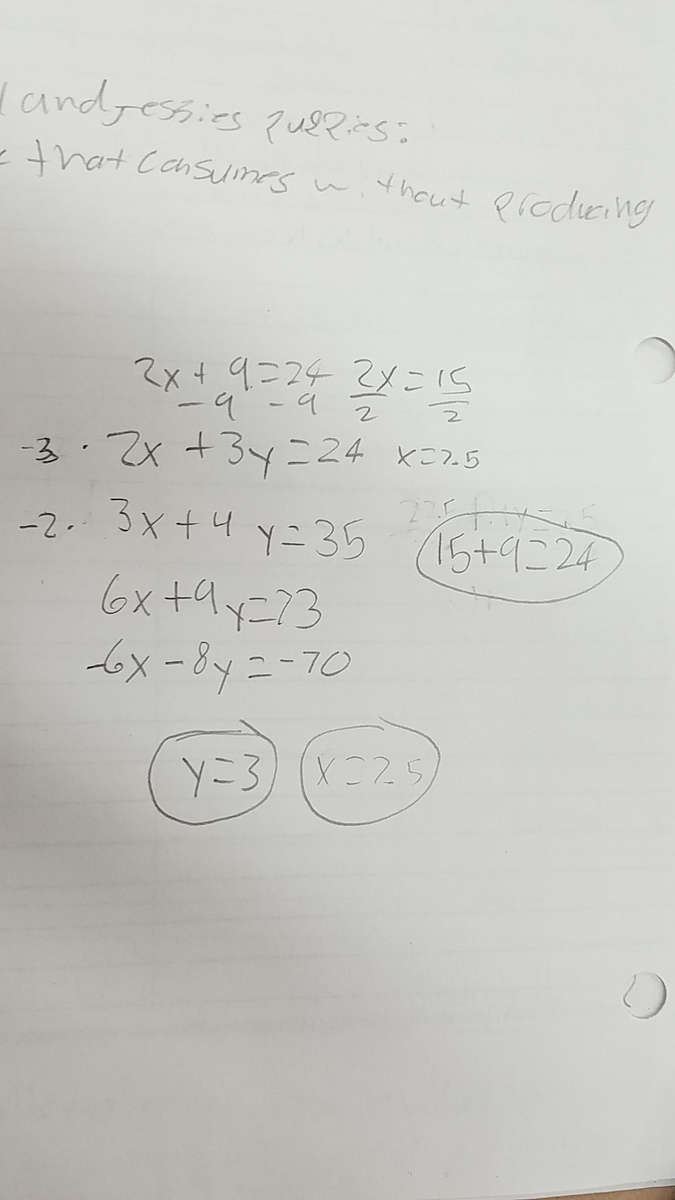 and Jessies puzzles:
that consumes without producing
2x + 9 = 24 2x = 15
- 9 - 9 2 2
-3 · 2x + 3y = 24 x = 7.5
-2 · 3x + 4 y = 35
15 + 9 = 24
6x + 9y = 73
-6x - 8y = -70
y = 3 x = 2 5